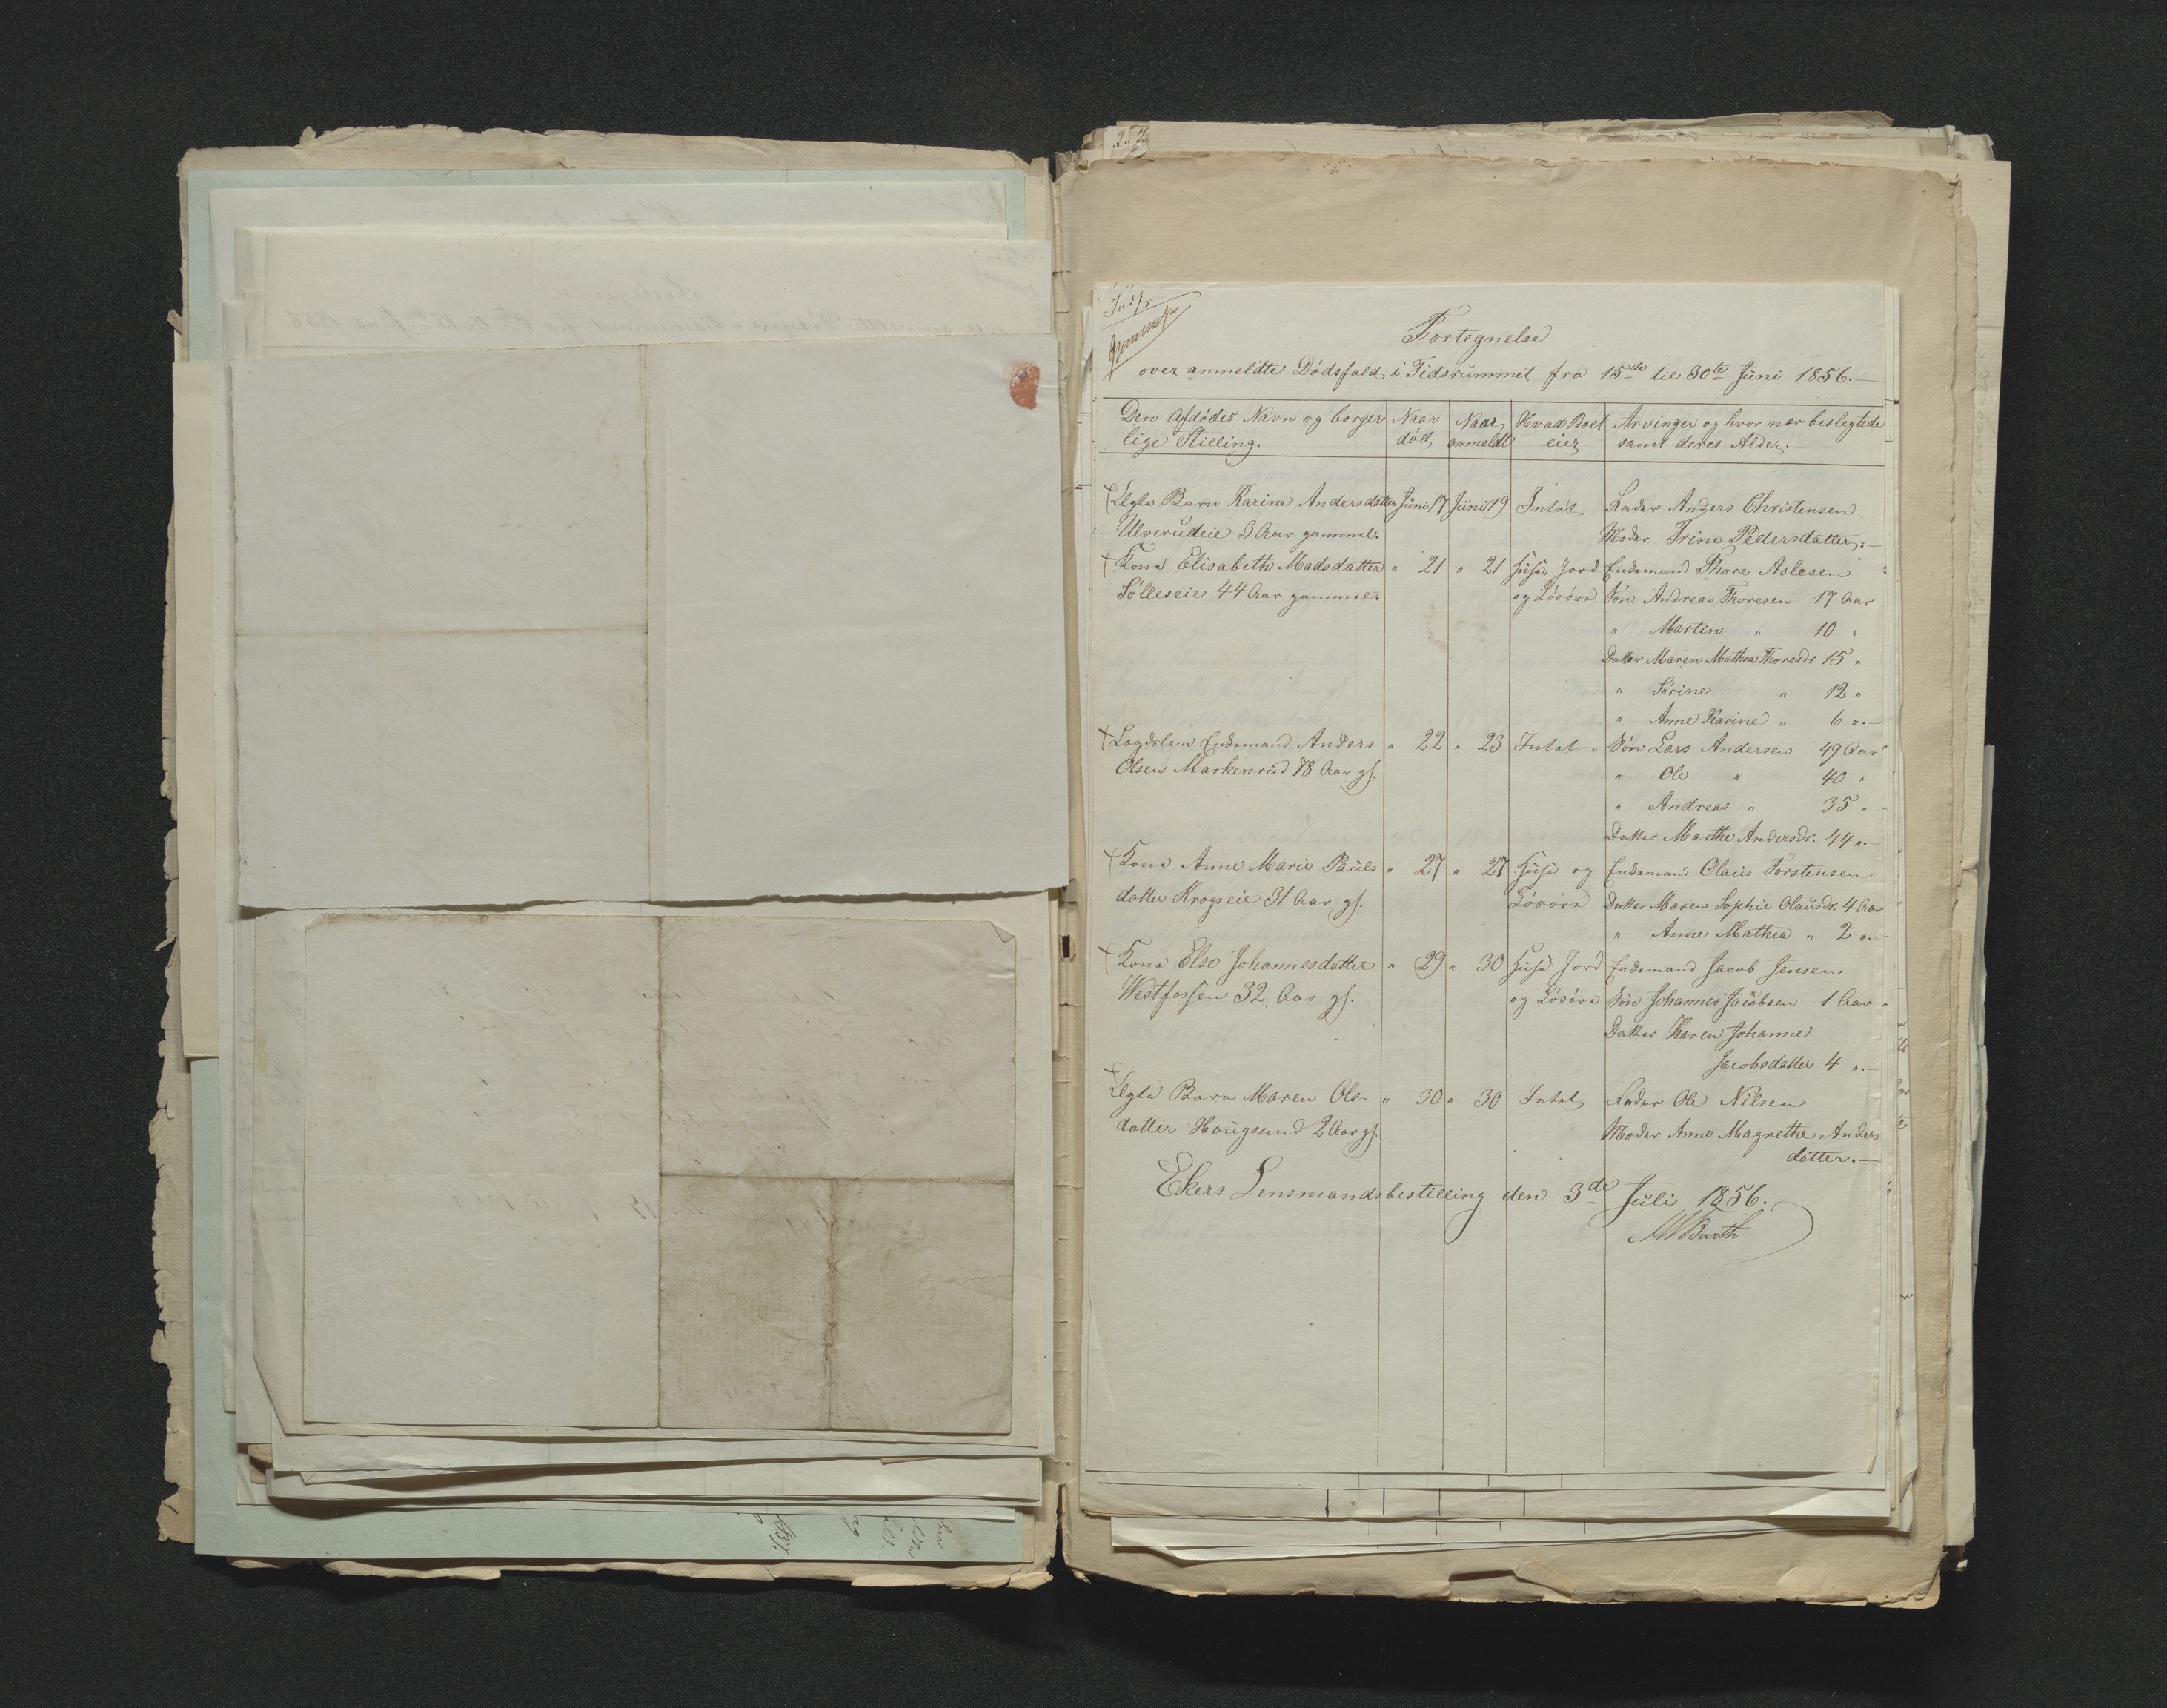 Indf
Fortegnelse
over anmeldte Dödsfald i Tidsrummet fra 15de til 30te Juni 1856.
Den afdödes Navn og borger Naar Naar Hvad Boet Arvinger og hvor nær beslegtede
lige Stilling. död anmeldt eier samt deres Alder.
Ægte Barn Karine Andersdatter Juni 17 Juni 19 Intet Fader Anders Christensen
Ulverudeie 3 Aar gammel. Moder Trine Pedersdatter.
Kone Elisabeth Madsdatter " 21 " 21 Huse, Jord Enkemand Thore Aslesen
Sölleseie 44 Aar gammel. og Lösöre Sön Andreas Thoresen 17 Aar
" Martin " 10 "
Datter Maren Mathea Thoresdr 15 "
" Sörine " 12 "
" Anne Karine " 6 ".
Lægdslem Enkemand Anders " 22 " 23 Intet Sön Lars Andersen 49 Aar
Olsen Markenrud 78 Aar gl. " Ole " 40 "
" Andreas " 35 "
Datter Marthe Andersdr. 44 ".
Kone Anne Marie Pauls " 27 " 27 Huse og Enkemand Olaus Torstensen
datter Krogseie 31 Aar gl. Lösöre Datter Maren Sophie Olausdr. 4 Aar
" Anne Mathea " 2 ".
Kone Else Johannesdatter " 29 " 30 Huse Jord Enkemand Jacob Jensen
Westfossen 32 Aar gl. og Lösöre Sön Johannes Jacobsen 1 Aar
Datter Karen Johanne
Jacobsdatter 4 ".
Ægte Barn Maren Ols- " 30 " 30 Intet Fader Ole Nilsen
datter Hougsund 2 Aar gl. Moder Anne Magrethe Anders
datter.
Ekers Lensmandsbestilling den 3de Juli 1856.
Barth